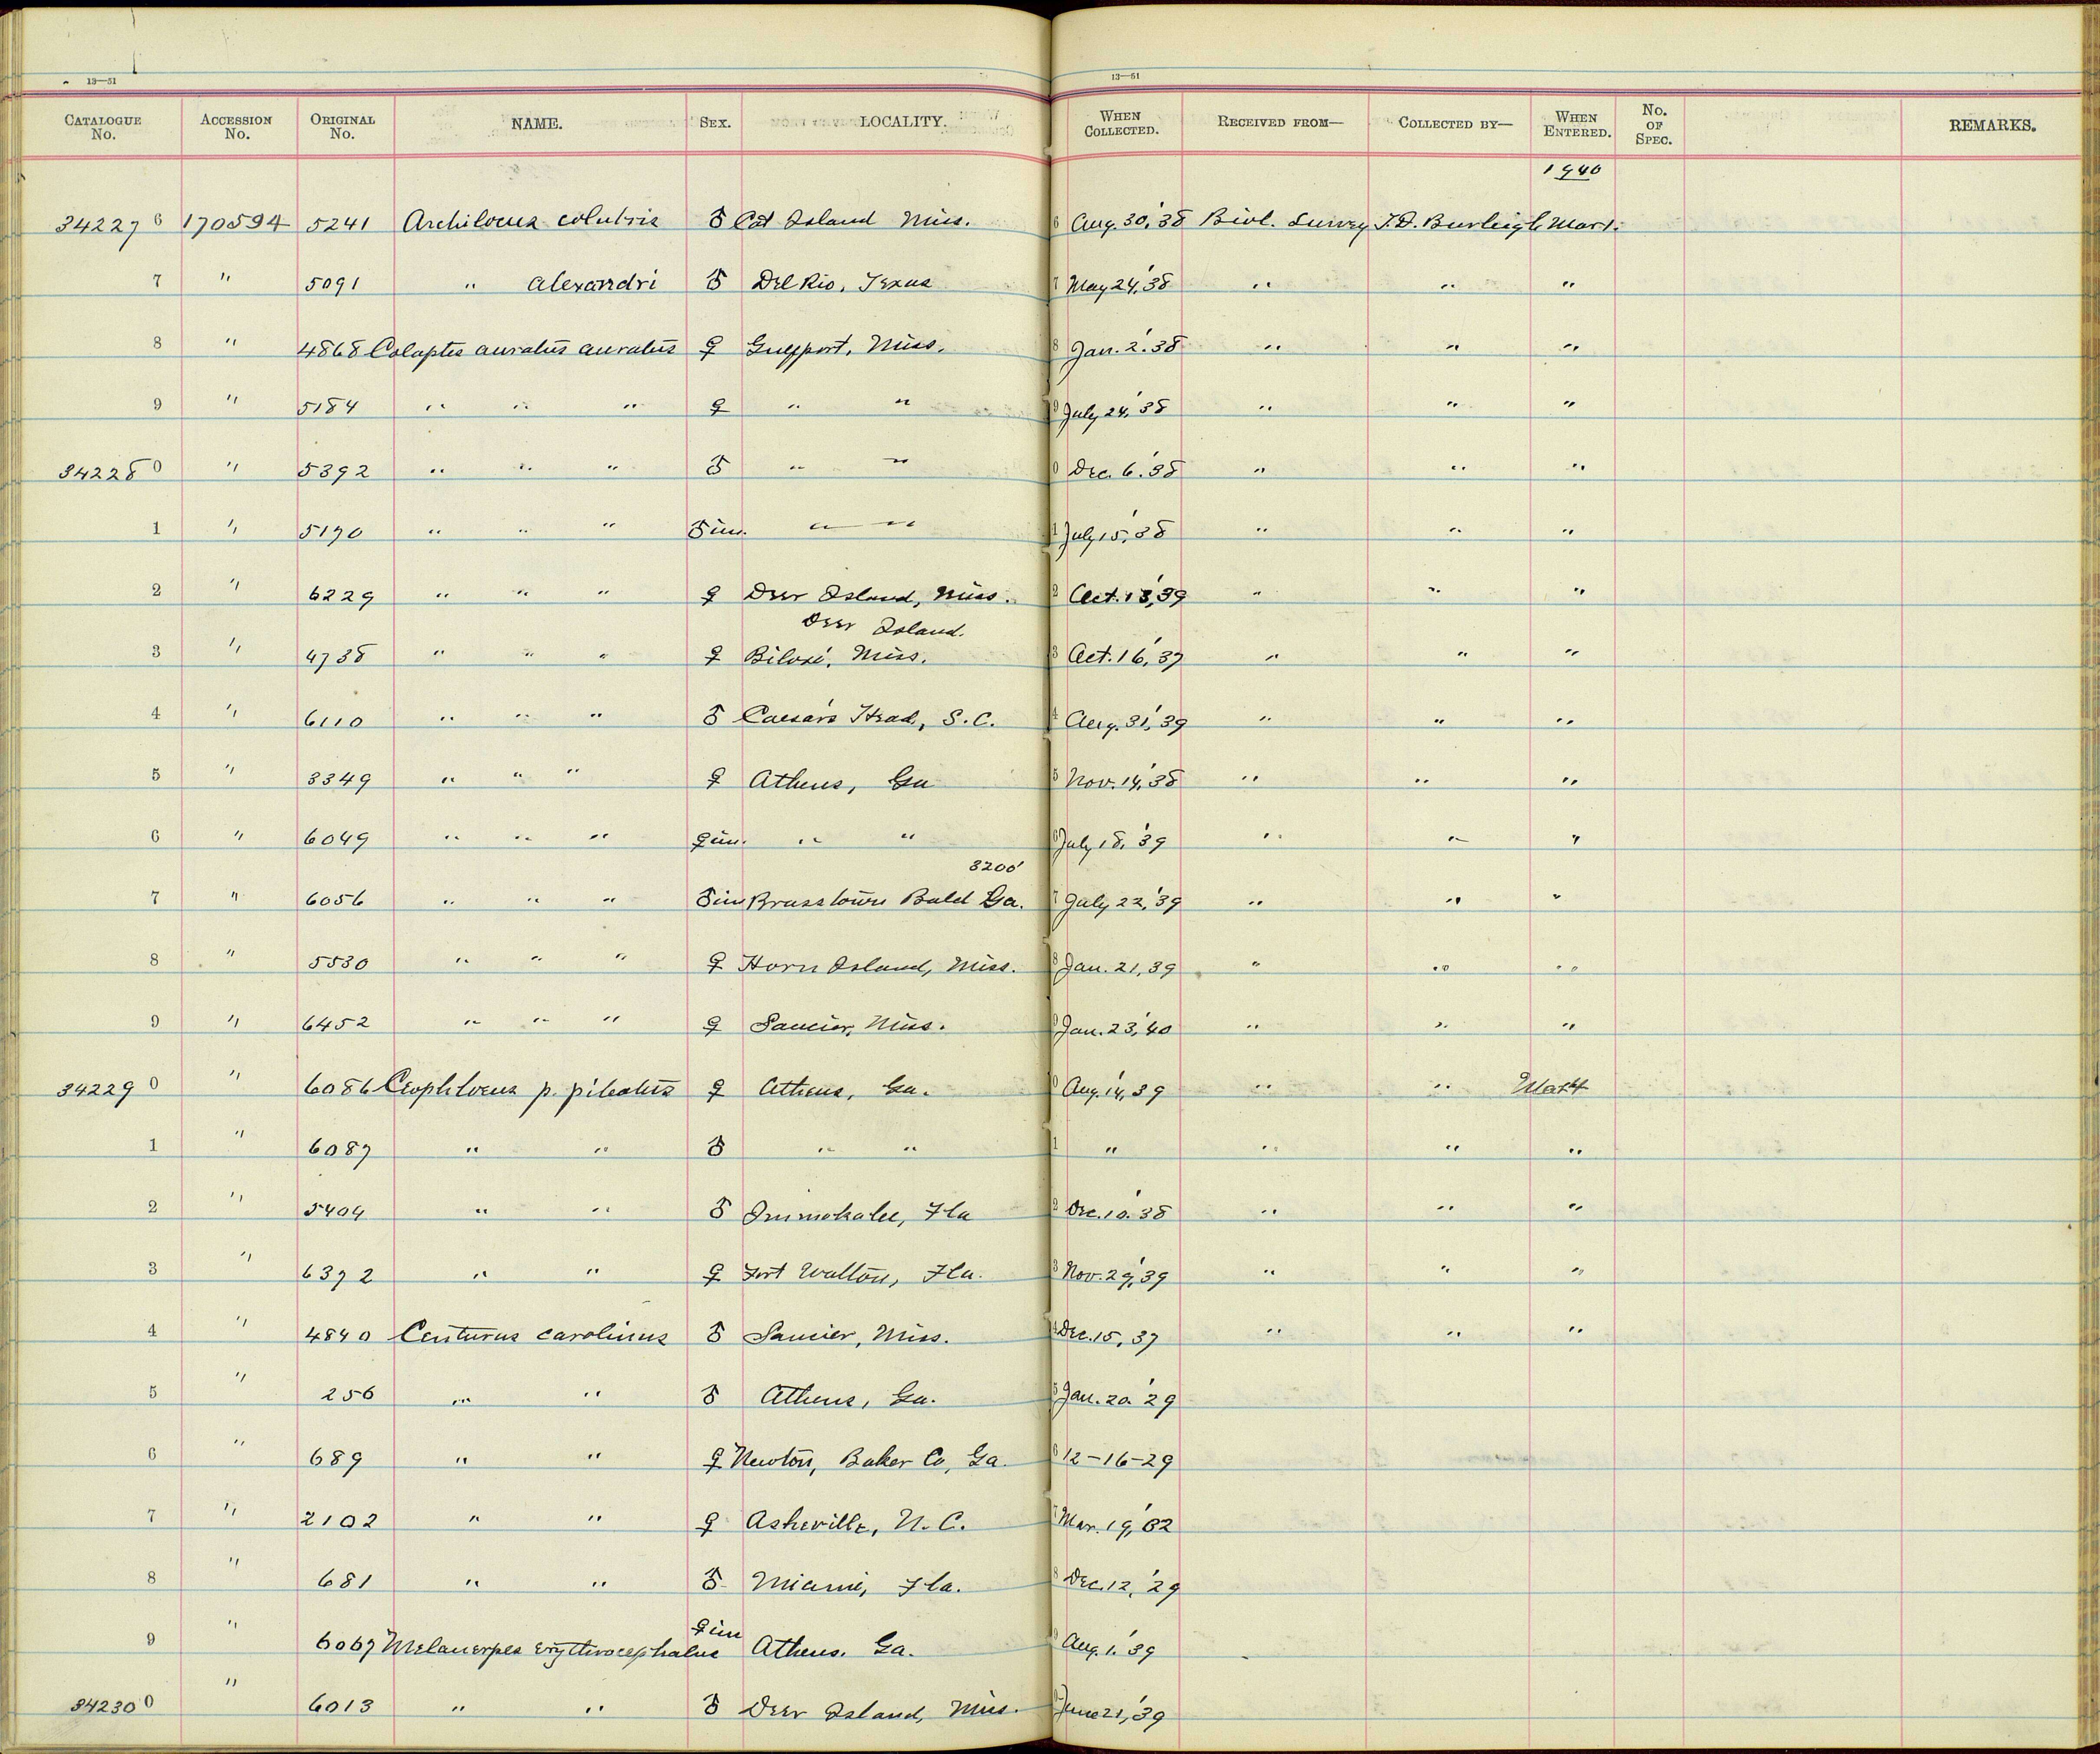 13—51 13—51
CATALOGUE No. ACCESSION No. ORIGINAL No. NAME. SEX. LOCALITY. WHEN COLLECTED. RECEIVED FROM— COLLECTED BY— WHEN ENTERED. No. OF SPEC. REMARKS.
1940
342276 170594 5241 Archilocus colubris ♂ Cat Island Miss. 6 Aug. 30,'38 Biol. Survey T.D. Burleigh Mar 1.
7 " 5091 " alexandri ♂ Del Rio, Texas 7 May 24,'38 " " "
8 " 4868 Colaptes auratus auratus ♀ Gulfport, Miss. 8 Jan. 2.'38 " " "
9 " 5184 " " " ♀ " " 9 July 24,'38 " " "
342280 " 5392 " " " ♂ " " 0 Dec. 6.'38 " " "
1 " 5170 " " " ♂ im. " " 1 July 15,'38 " " "
2 " 6229 " " " ♀ Deer Island, Miss. 2 Oct. 13,'39 " " "
Deer Island.
3 " 4738 " " " ♀ Biloxi, Miss. 3 Oct. 16,'37 " " "
4 " 6110 " " " ♂ Caesars Head, S.C. 4 Aug. 31,'39 " " "
5 " 3349 " " " ♀ Athens, Ga 5 Nov. 14,'38 " " "
6 " 6049 " " " ♀ im. " " 6 July 18,'39 " " "
3200'
7 " 6056 " " " ♂ im Brasstown Bald Ga. 7 July 22,'39 " " "
8 " 5530 " " " ♀ Horn Island, Miss. 8 Jan. 21,'39 " " "
9 " 6452 " " " ♀ Saucier, Miss. 9 Jan. 23,'40 " " "
342290 " 6086 Ceophloeus p. pileatus ♀ Athens, Ga. 0 Aug. 14,'39 " " Mar 4
1 " 6087 " " ♂ " " 1 " " " "
2 " 5404 " " ♂ Immokalee, Fla 2 Dec. 10.'38 " " "
3 " 6372 " " ♀ Fort Walton, Fla. 3 Nov. 29,'39 " " "
4 " 4840 Centurus carolinus ♂ Saucier, Miss. 4 Dec. 15,'37 " " "
5 " 256 " " ♂ Athens, Ga. 5 Jan. 20.'29
6 " 689 " " ♀ Newton, Baker Co, Ga. 6 12-16-29
7 " 2102 " " ♀ Asheville, N.C. 7 Mar. 19,'32
8 " 681 " " ♂ Miami, Fla. 8 Dec. 12,'29
9 " 6067 Melanerpes erythrocephalus ♀ im Athens. Ga. 9 Aug. 1.'39
342300 " 6013 " " ♂ Deer Island, Miss. 0 June 21,'39